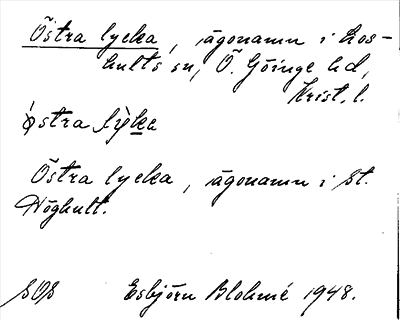 Östra lycka, ägonamn i Los-
hults sn, Ö. Göinge hd,
Krist. l.
östra lyka
Östra lycka, ägonamn i St.
Höghult.
SOS Esbjörn Blohmé 1948.